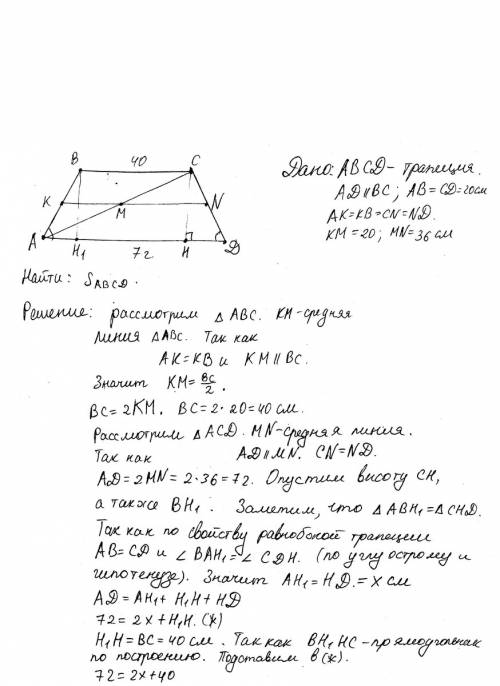 B 40 C
K M N
A H₁ 72 H D
Дано: ABCD - трапеция.
AD ∥ BC; AB = CD = 20см
AK=KB=CN=ND.
KM = 20; MN = 36 см
Найти: S_ABCD.
Решение: рассмотрим △ ABC. KM-средняя
линия △ABC. Так как
AK=KB и KM ∥ BC.
Значит KM = BC/2.
BC = 2KM. BC = 2·20 = 40 см.
Рассмотрим △ACD. MN-средняя линия.
Так как AD ∥ MN. CN=ND.
AD = 2MN = 2·36 = 72. Опустим высоту CH,
а также BH₁. Заметим, что △ABH₁ = △CHD.
Так как по свойству равнобокой трапеции
AB = CD и ∠BAH₁ = ∠CDH. (по углу острому и
гипотенузе). Значит AH₁ = HD. = x см
AD = AH₁ + H₁H + HD
72 = 2x + H₁H. (*)
H₁H = BC = 40 см. Так как BH₁HC - прямоугольник
по построению. Подставим в (*).
72 = 2x + 40